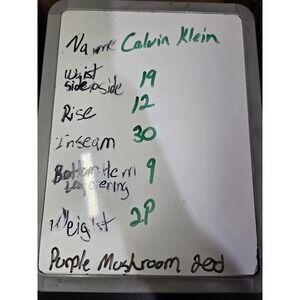 Name Calvin Klein
Waist
side 2 side 19
Rise 12
Inseam 30
Bottom Hem 9
Leg opening
Weight 2P
Purple Mushroom